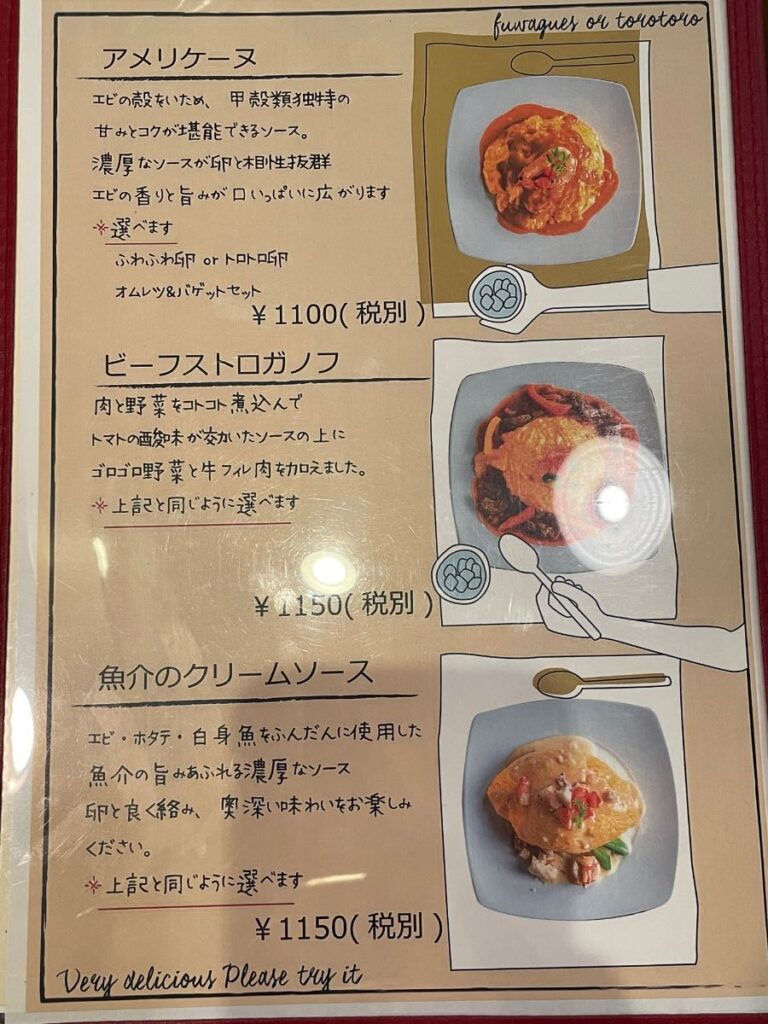 fuwagues or torotoro
アメリケーヌ
エビの殻をいため、甲殻類独特の
甘みとコクが堪能できるソース。
濃厚なソースが卵と相性抜群
エビの香りと旨みが口いっぱいに広がります
※選べます
ふわふわ卵 or トロトロ卵
オムレツ&バゲットセット
¥1100(税別)
ビーフストロガノフ
肉と野菜をコトコト煮込んで
トマトの酸味が効いたソースの上に
ゴロゴロ野菜と牛フィレ肉を加えました。
※上記と同じように選べます
¥1150(税別)
魚介のクリームソース
エビ・ホタテ・白身魚をふんだんに使用した
魚介の旨みあふれる濃厚なソース
卵と良く絡み、奥深い味わいをお楽しみ
ください。
※上記と同じように選べます
¥1150(税別)
Very delicious Please try it